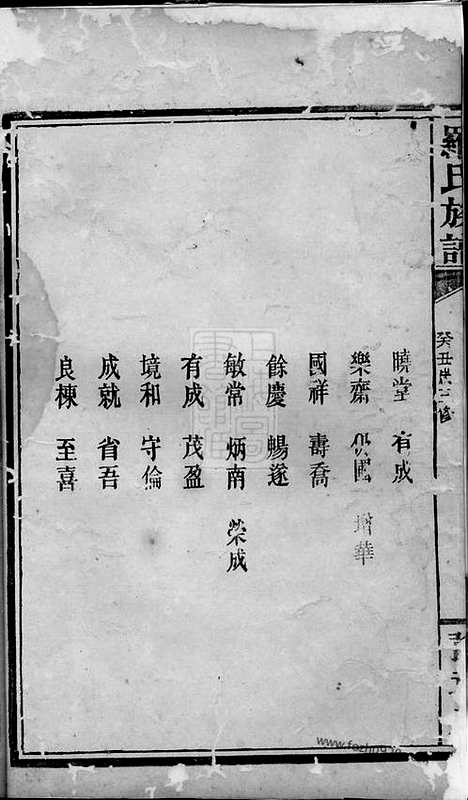 羅氏族譜
癸丑歲三修
曉堂 有成
樂齋 以國 增華
國祥 壽喬
餘慶 暢遂
敏常 炳南 榮成
有成 茂盈
境和 守倫
成就 省吾
良棟 至喜